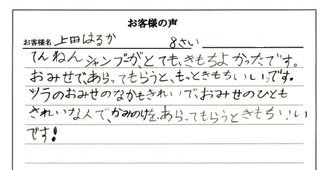 お客様の声
お客様名 上田はるか 8さい
てんねんシャンプーが、とても、きもちよかったです。
おみせで、あらってもらうと、もっときもちいいです。
ツラのおみせのなかもきれいで、おみせのひとも
きれいな人で、かみのけを、あらってもらうときもちいい
です!